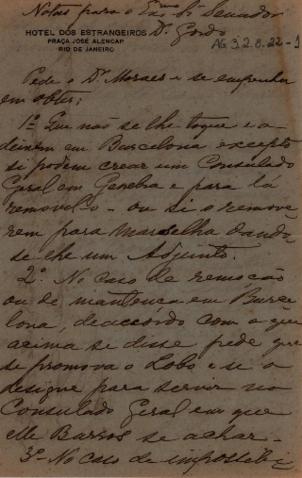 Notas para o Exmo Sr. Senador
Dr. Gordo
HOTEL DOS ESTRANGEIROS
PRAÇA JOSÉ ALENCAR
RIO DE JANEIRO
AG 3.2.8.22-1
Pede o Dr. Moraes e se empenha
em obter:
1º Que não se lhe toque e o
deixem em Barcelona excepto
si podem crear um Consulado
Geral em Genebra e para lá
removel-o - ou si o remove
rem para Marselha dando
se lhe um Adjunto.
2º No caso de remoção
ou de mantença em Barce
lona, de accôrdo com o que
acima se disse pede que
se promova o Lobo e se o
designe para servir no
Consulado Geral em que
elle Barros se achar.
3º No caso de impossibi